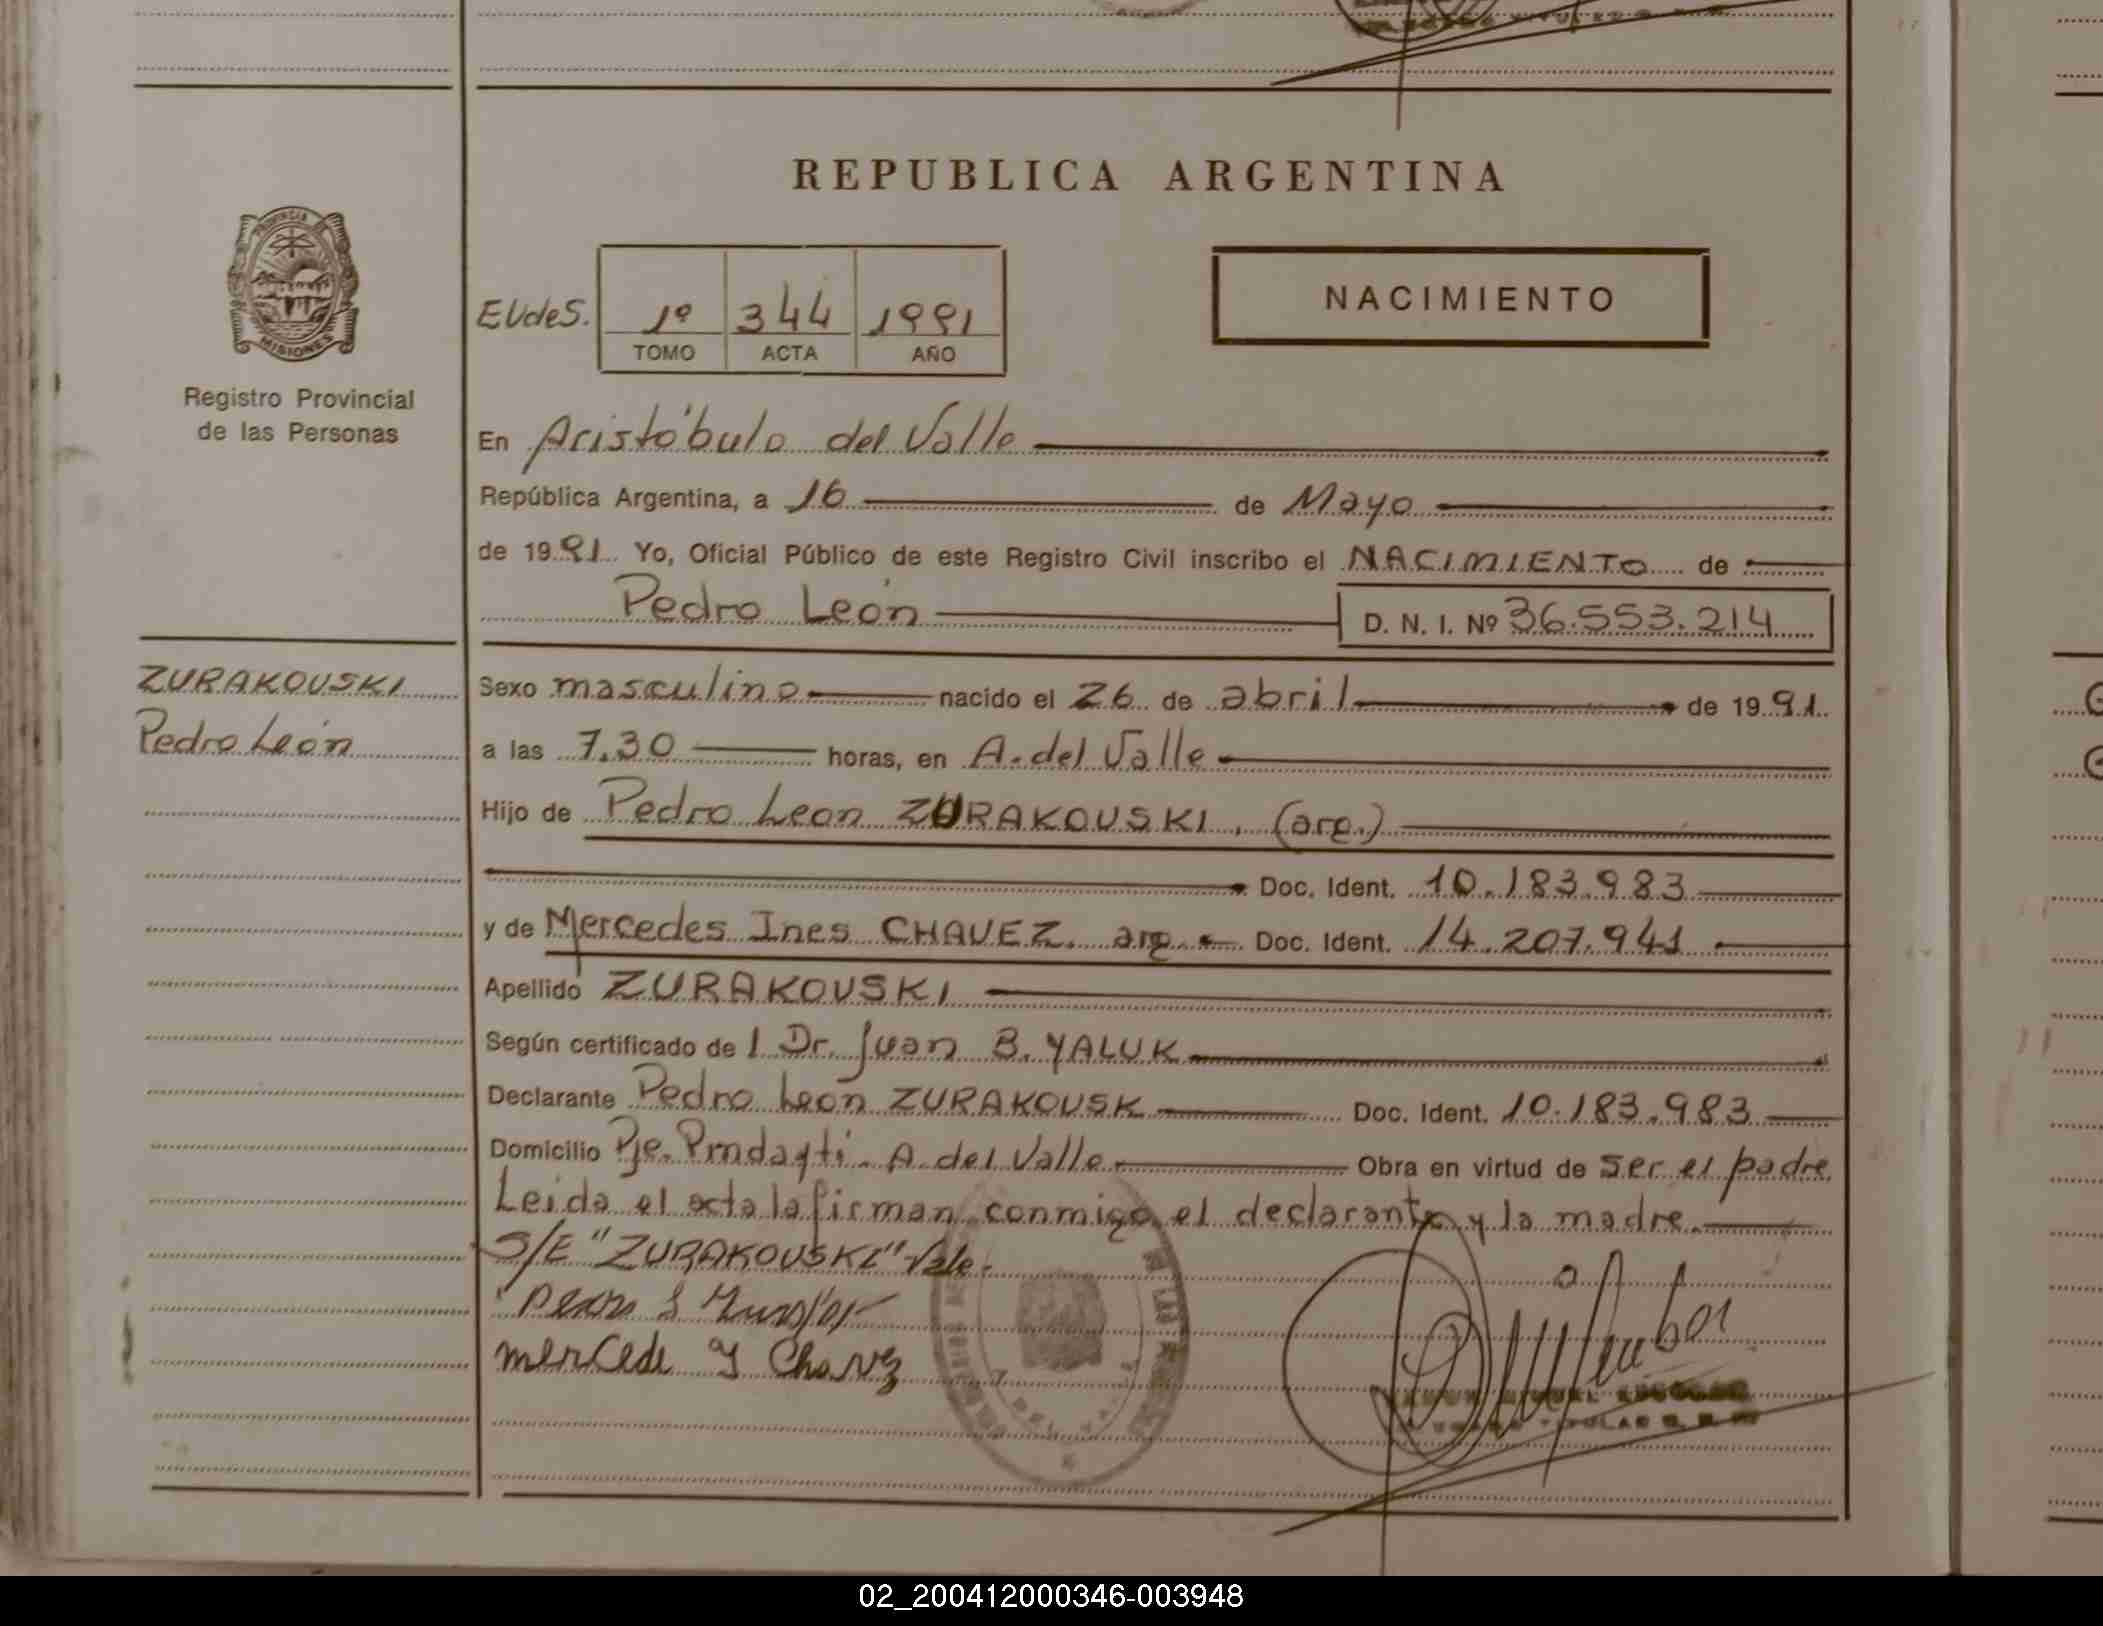 REPUBLICA ARGENTINA
PROVINCIA
MISIONES
Registro Provincial
de las Personas
NACIMIENTO
EVdeS. 1º 344 1991
TOMO ACTA AÑO
En Aristóbulo del Valle
República Argentina, a 16 de Mayo
de 1991 Yo, Oficial Público de este Registro Civil inscribo el NACIMIENTO de
Pedro León D. N. I. Nº 36.553.214
ZURAKOUSKI
Pedro León
Sexo masculino nacido el 26 de abril de 1991.
a las 7.30 horas, en A. del Valle
Hijo de Pedro Leon ZURAKOUSKI, (arg.)
Doc. Ident. 10.183.983
y de Mercedes Ines CHAVEZ. arg. Doc. Ident. 14.207.941
Apellido ZURAKOUSKI
Según certificado de l Dr. Juan B. YALUK
Declarante Pedro León ZURAKOUSK Doc. Ident. 10.183.983
Domicilio Pje. A. del Valle Obra en virtud de ser el padre.
Leida el acta la firman conmigo el declarante y la madre.
S/E "ZURAKOUSKI" Vale.
mercede Y Chavez
DE LAS
DEL VALLE
TITULAR
02_200412000346-003948